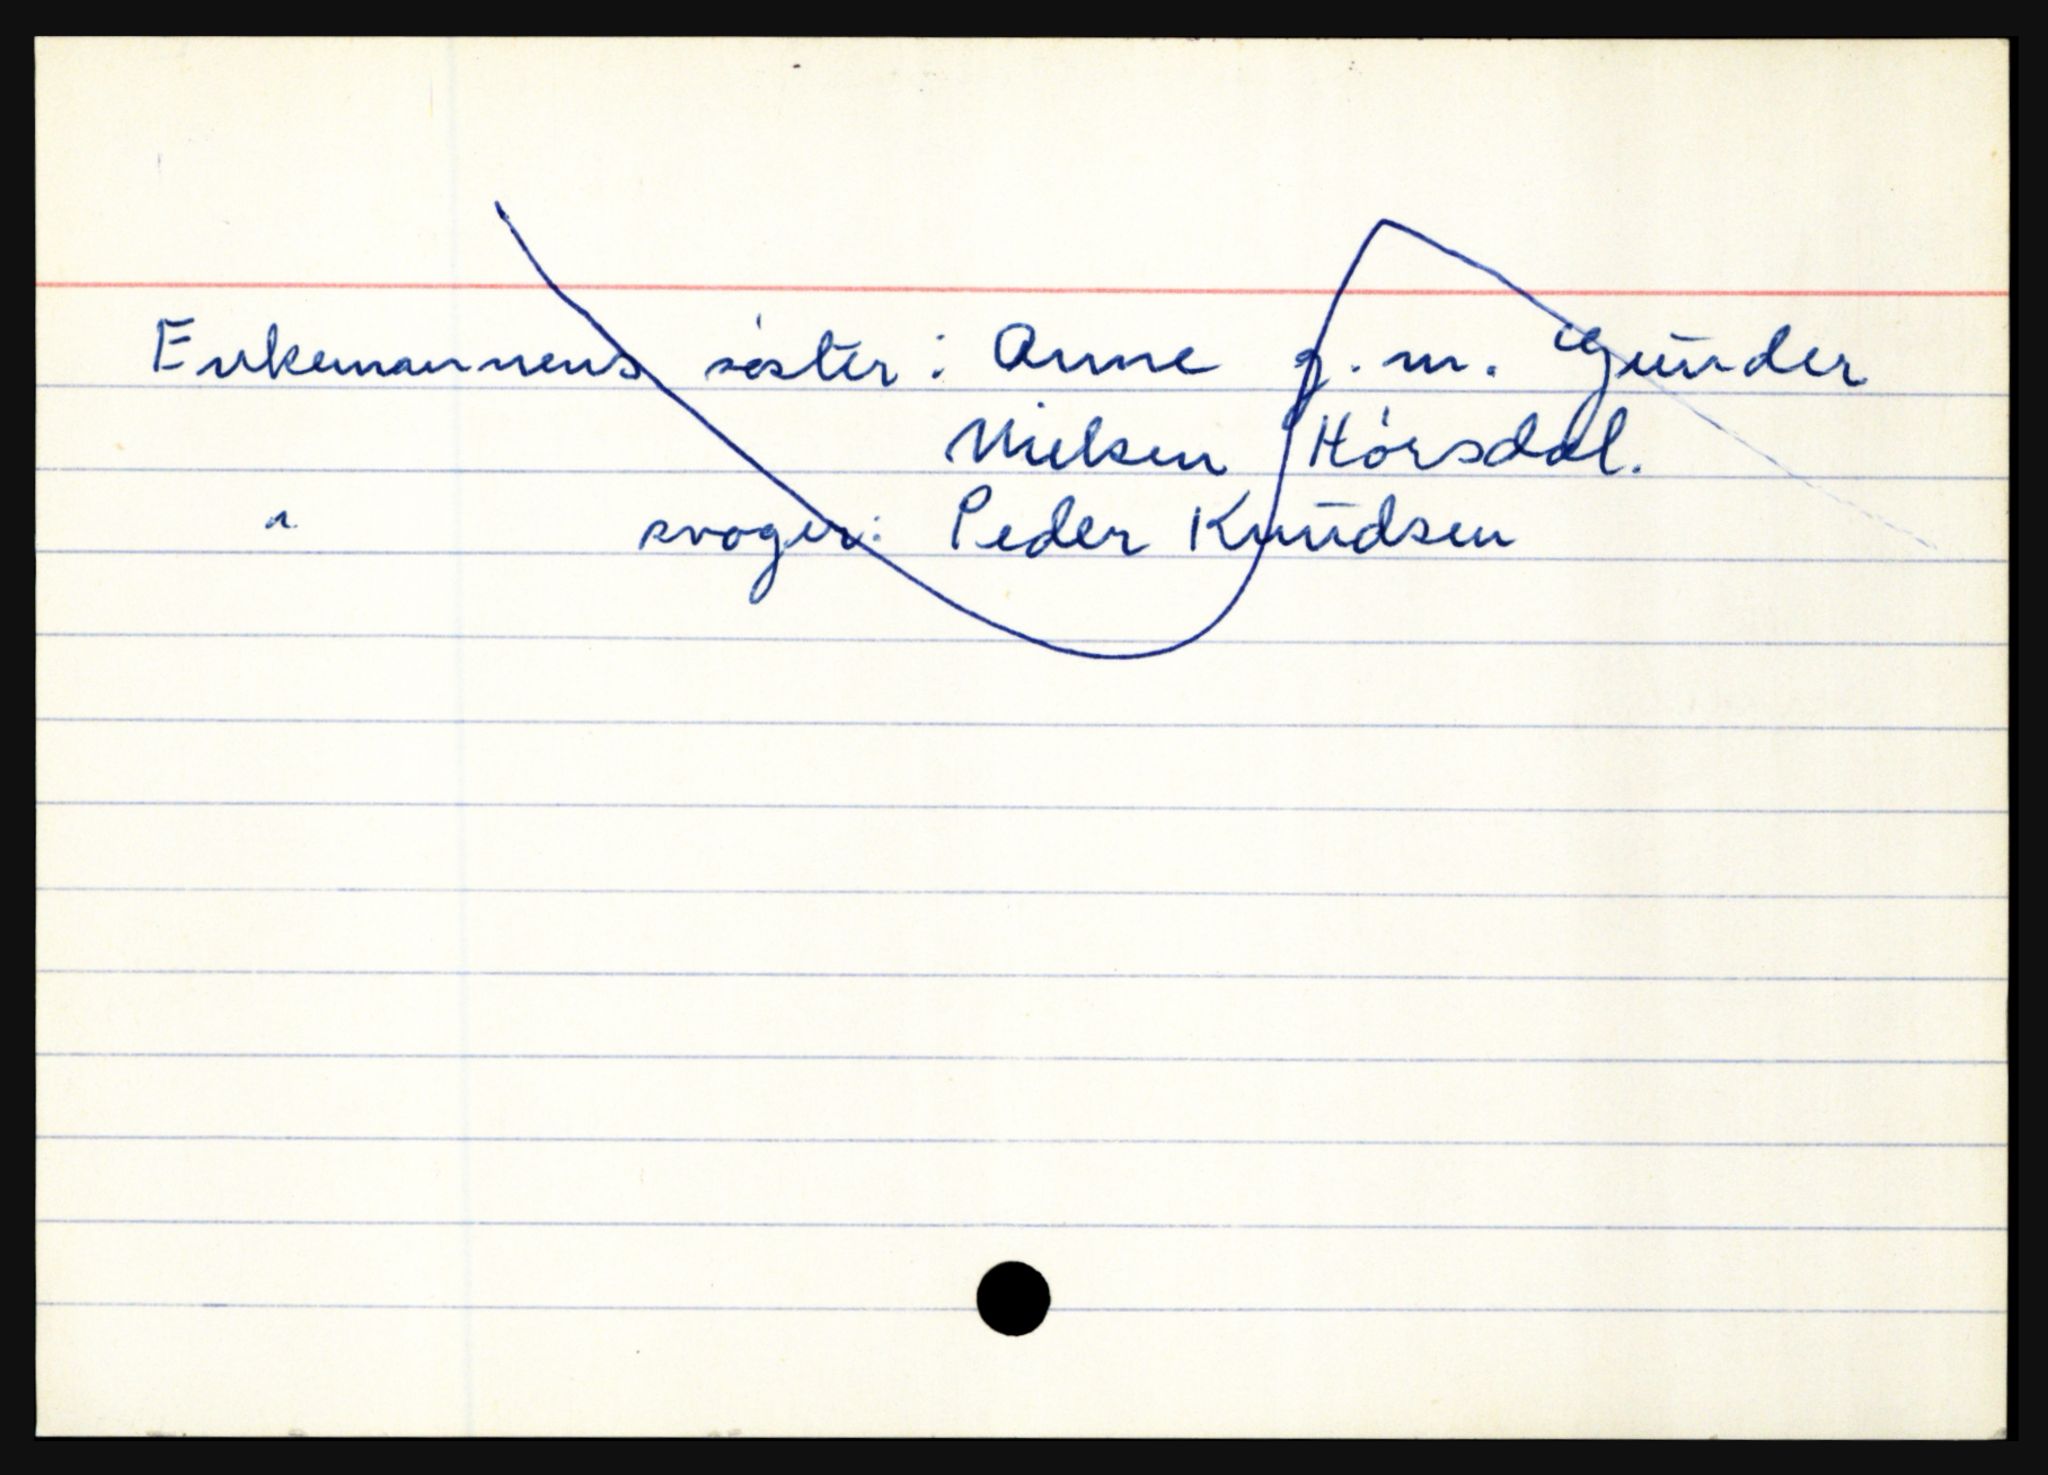 Enkemannens søster: Anne g.m. Gunder
Nielsen Hørsdal.
" svoger: Peder Knudsen